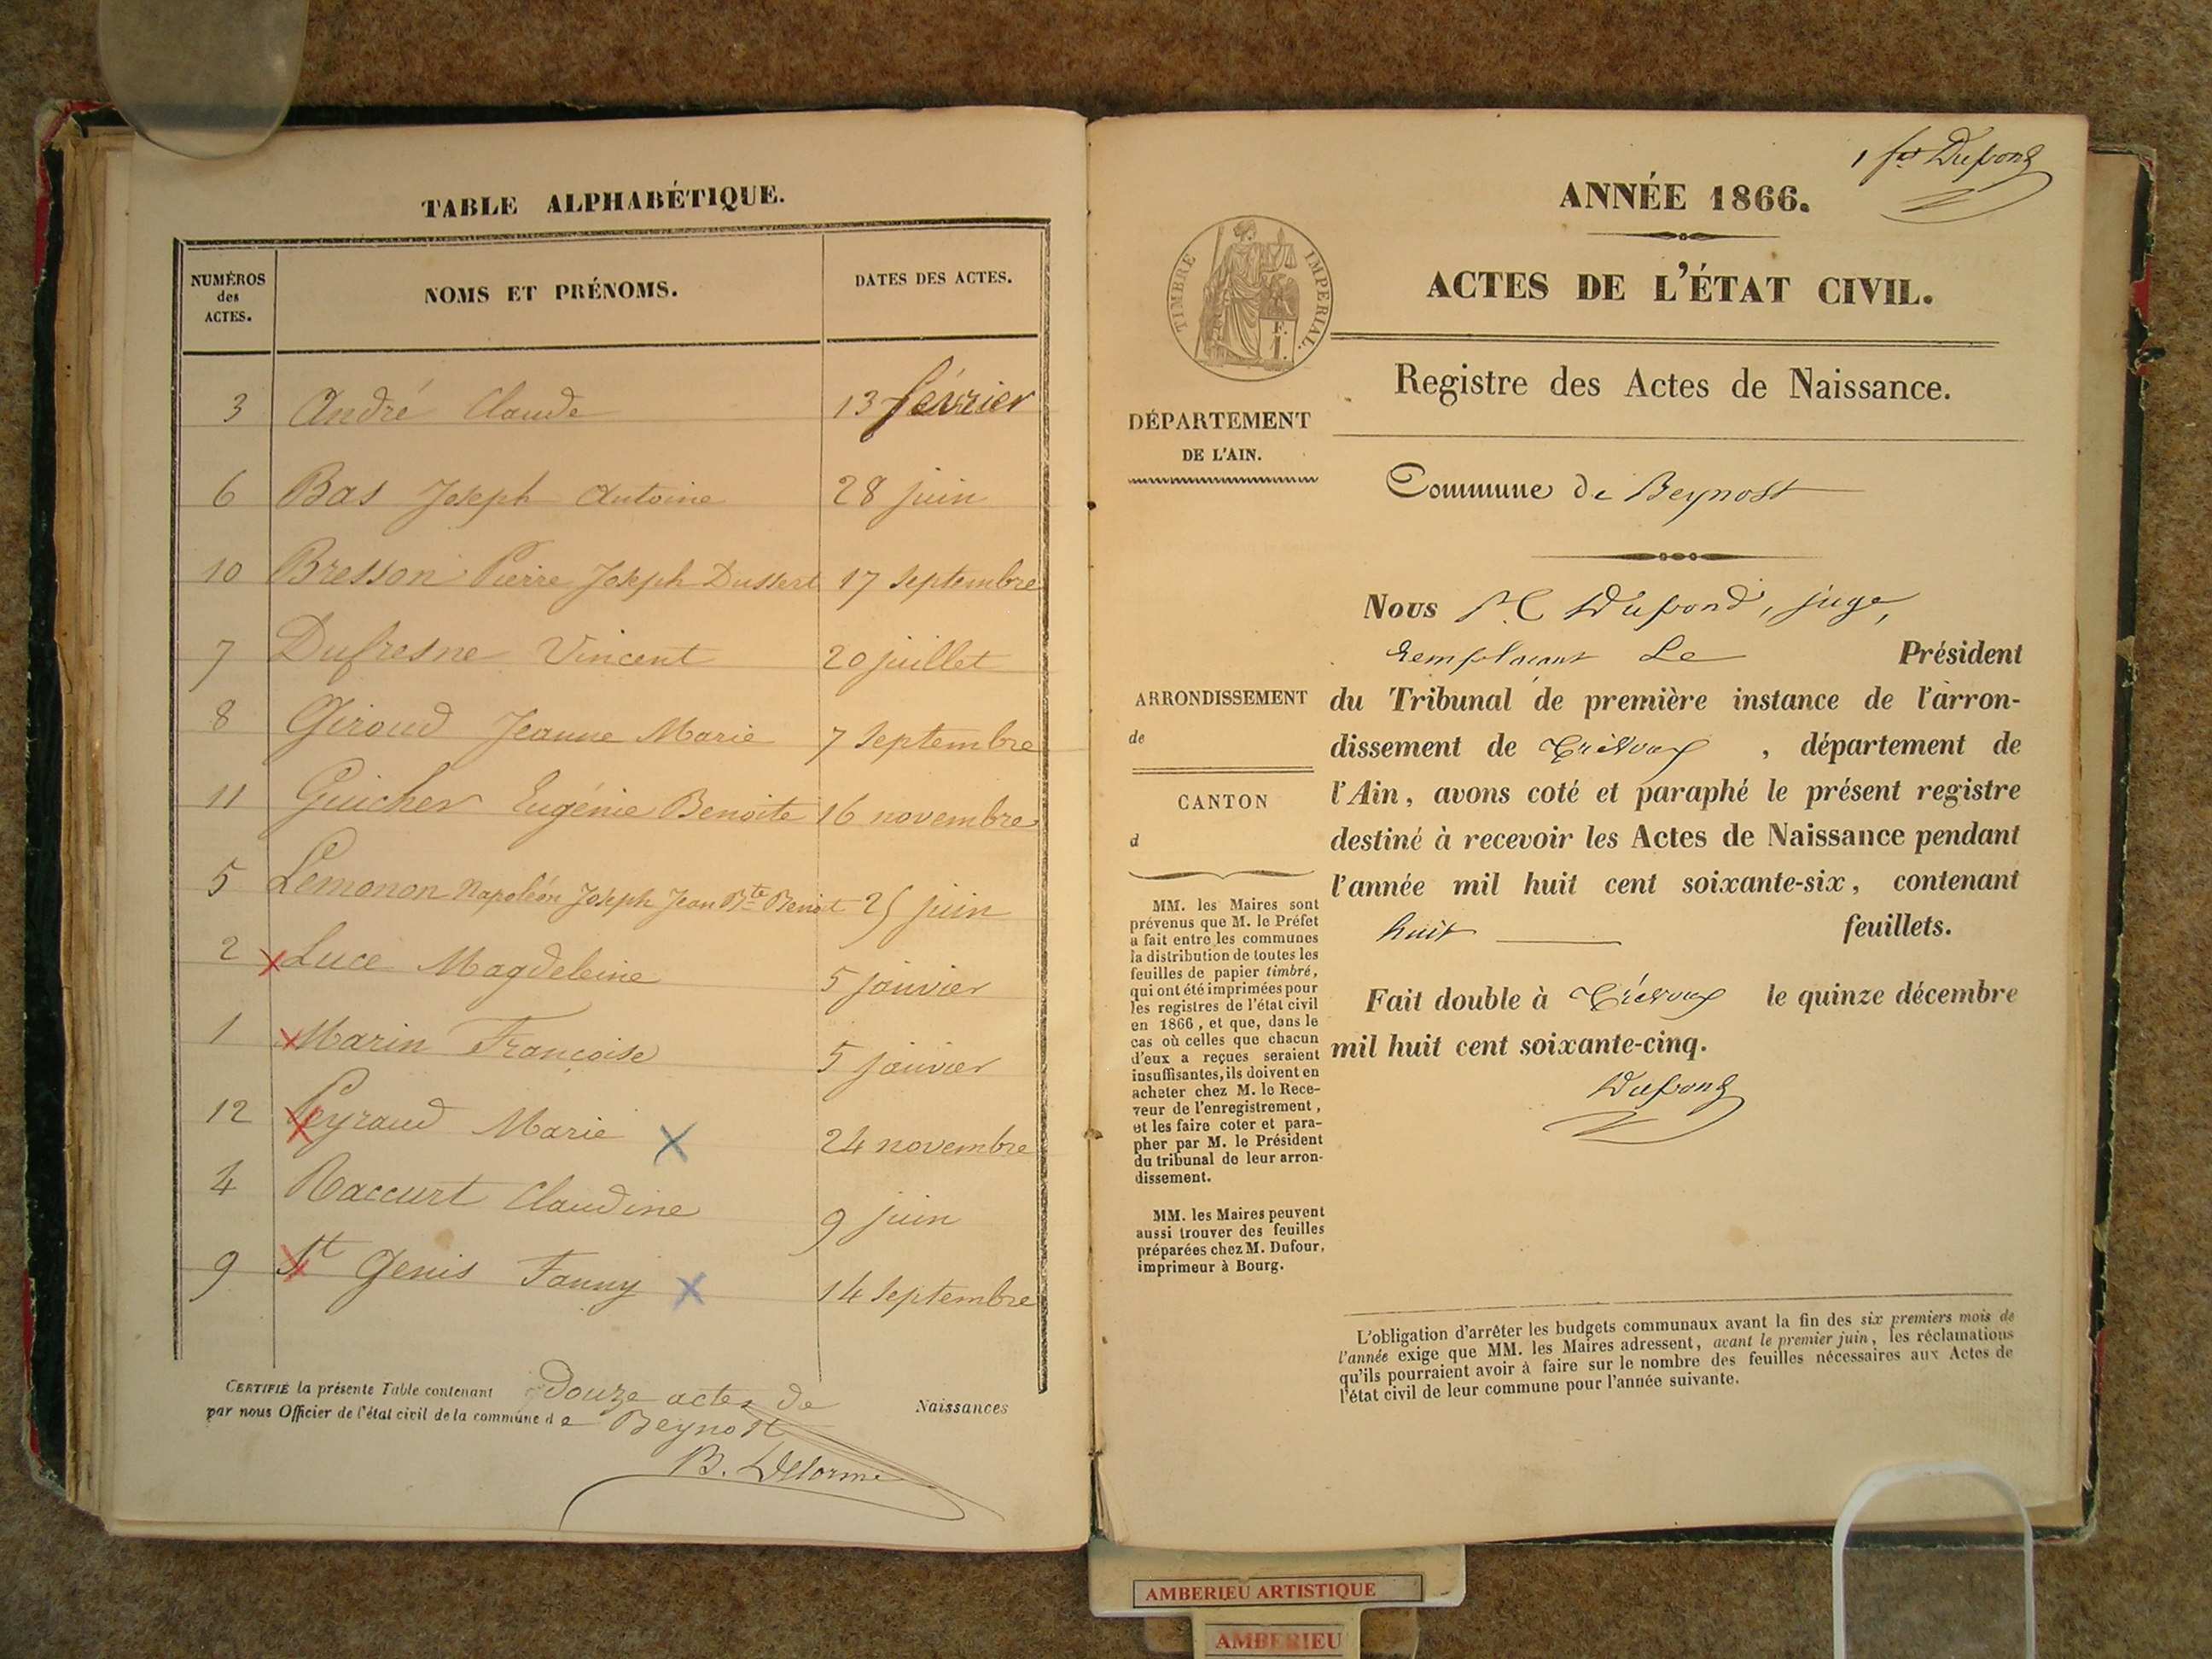 TABLE ALPHABÉTIQUE.
NUMÉROS
des
ACTES.
NOMS ET PRÉNOMS.
DATES DES ACTES.
3 André Claude 13 février
6 Bas Joseph Antoine 28 juin
10 Bresson Pierre Joseph Dussert 17 Septembre
7 Dufresne Vincent 20 juillet
8 Giroud Jeanne Marie 7 Septembre
11 Guicher Eugénie Benoite 16 novembre
5 Lemonon Napoléon Joseph Jean Bte Benoit 25 juin
2 Luce Magdeleine 5 janvier
1 Marin Françoise 5 janvier
12 Peyraud Marie 24 novembre
4 Raccurt Claudine 9 juin
9 St Genis Fanny 14 Septembre
CERTIFIÉ la présente Table contenant douze actes de Naissances
par nous Officier de l'état civil de la commune de Beynost
B. Delorme
1 fet Dupond
ANNÉE 1866.
ACTES DE L'ÉTAT CIVIL.
TIMBRE IMPERIAL.
F.
I.
Registre des Actes de Naissance.
DÉPARTEMENT
DE L'AIN.
Commune de Beynost
Nous Dupond, juge,
remplaçant Le Président
du Tribunal de première instance de l'arron-
dissement de Trévoux, département de
l'Ain, avons coté et paraphé le présent registre
destiné à recevoir les Actes de Naissance pendant
l'année mil huit cent soixante-six, contenant
huit feuillets.
Fait double à Trévoux le quinze décembre
mil huit cent soixante-cinq.
Dupond
ARRONDISSEMENT
de
CANTON
d
MM. les Maires sont
prévenus que M. le Préfet
a fait entre les communes
la distribution de toutes les
feuilles de papier timbré,
qui ont été imprimées pour
les registres de l'état civil
en 1866, et que, dans le
cas où celles que chacun
d'eux a reçues seraient
insuffisantes, ils doivent en
acheter chez M. le Rece-
veur de l'enregistrement,
et les faire coter et para-
pher par M. le Président
du tribunal de leur arron-
dissement.
MM. les Maires peuvent
aussi trouver des feuilles
préparées chez M. Dufour,
imprimeur à Bourg.
L'obligation d'arrêter les budgets communaux avant la fin des six premiers mois de
l'année exige que MM. les Maires adressent, avant le premier juin, les réclamations
qu'ils pourraient avoir à faire sur le nombre des feuilles nécessaires aux Actes de
l'état civil de leur commune pour l'année suivante.
AMBERIEU ARTISTIQUE
AMBERIEU